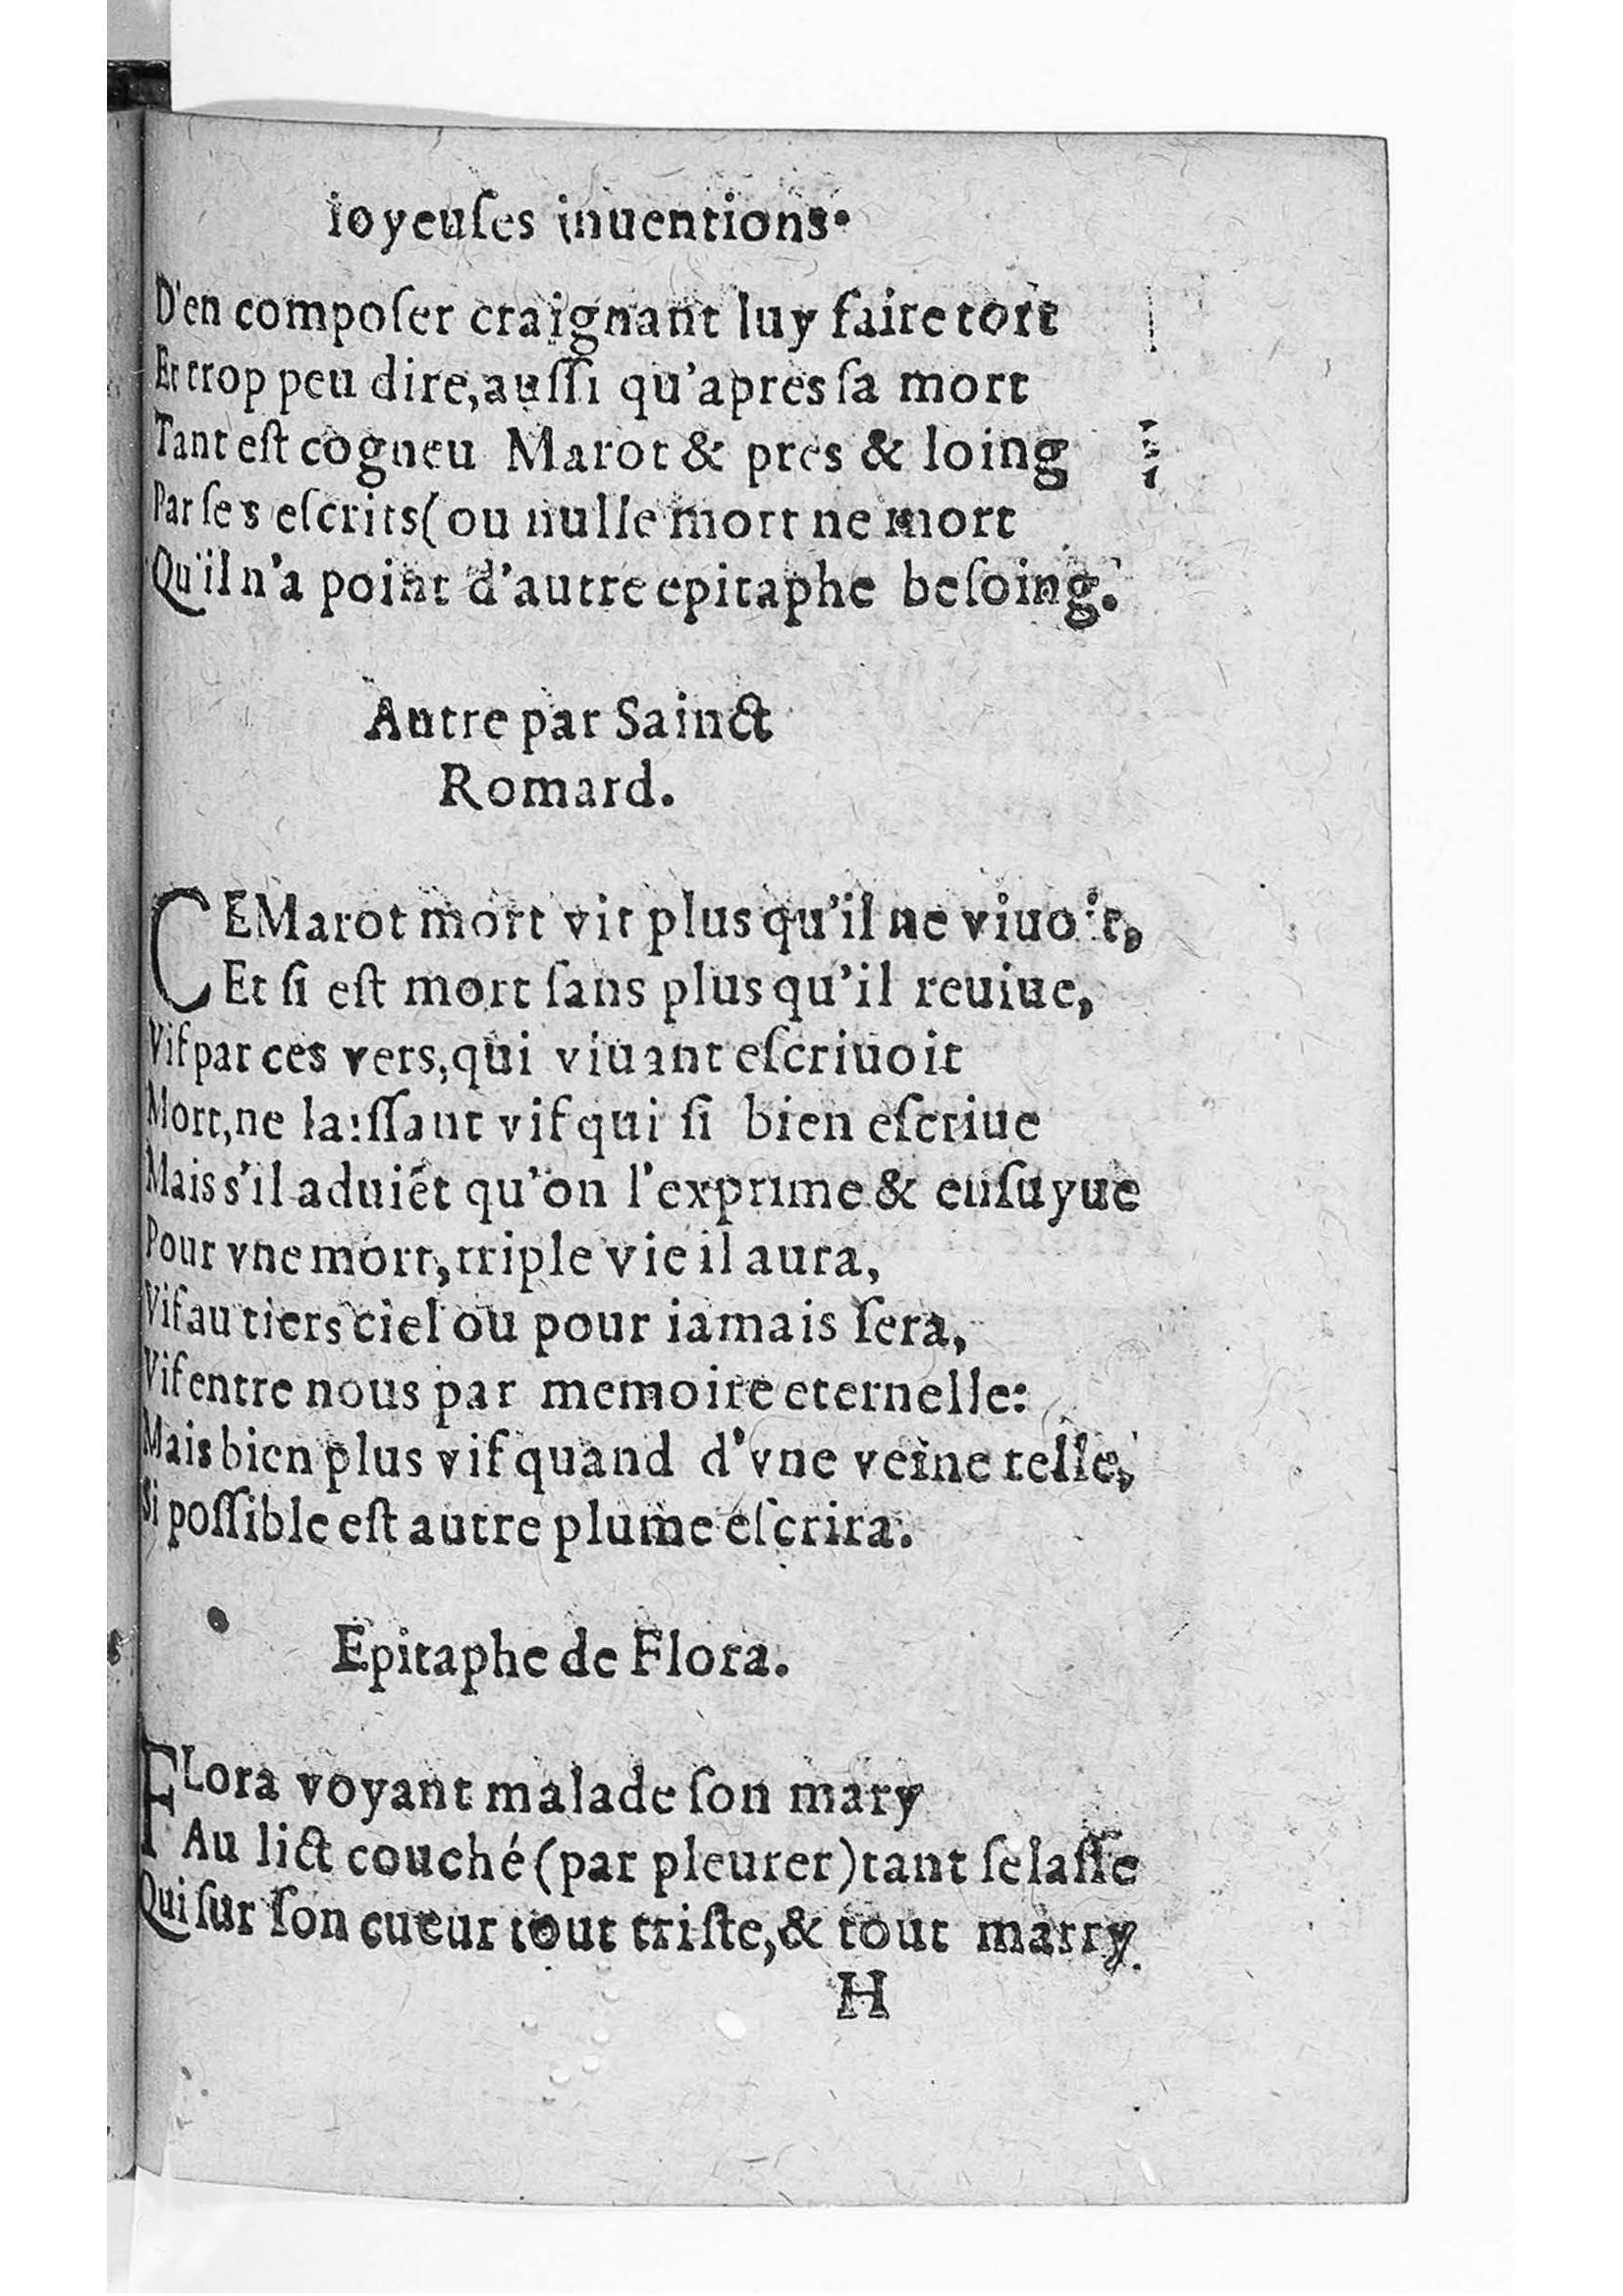 ioyeuſes inuentions.
D'en compoſer craignant luy faire tort
Et trop peu dire, auſſi qu'apres ſa mort
Tant eſt cogneu Marot & pres & loing
Par ſes eſcrits (ou nulle mort ne mort
Qu'il n'a point d'autre epitaphe beſoing.
Autre par Sainct
Romard.
CE Marot mort vit plus qu'il ne viuoit,
Et ſi eſt mort ſans plus qu'il reuiue,
Vif par ces vers, qui viuant eſcriuoit
Mort, ne laiſſant vif qui ſi bien eſcriue
Mais s'il aduiẽt qu'on l'exprime & enſuyue
Pour vne mort, triple vie il aura,
Vif au tiers ciel ou pour iamais ſera,
Vif entre nous par memoire eternelle:
Mais bien plus vif quand d'vne veine telle,
Si poſſible eſt autre plume eſcrira.
Epitaphe de Flora.
FLora voyant malade ſon mary
Au lict couché (par pleurer) tant ſe laſſe
Qui ſur ſon cueur tout triſte, & tout marry.
H